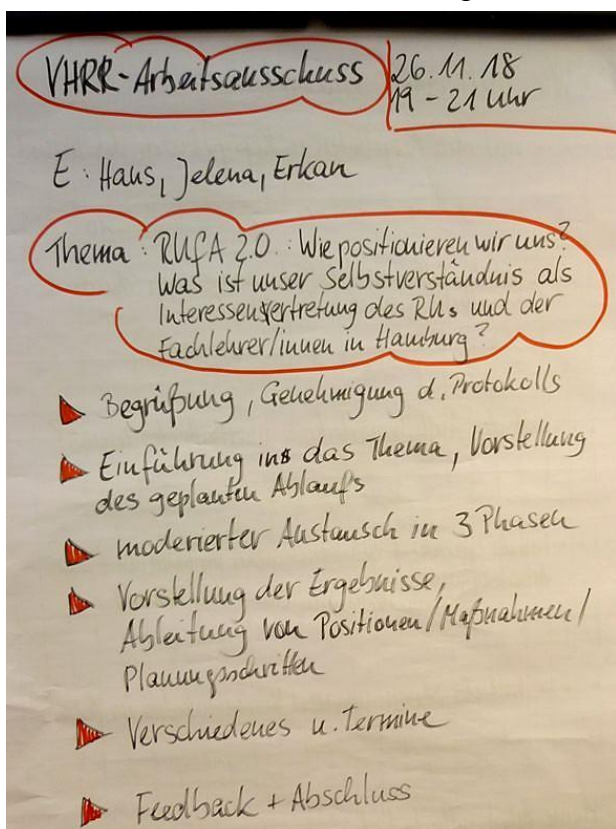 VHRR-Arbeitsausschuss
26.11.18
19-21 Uhr
E: Hans, Jelena, Erkan
Thema: RUfA 2.0.: Wie positionieren wir uns?
Was ist unser Selbstverständnis als
Interessensvertretung des RUs und der
Fachlehrer/innen in Hamburg?
Begrüßung, Genehmigung d. Protokolls
Einführung in das Thema, Vorstellung
des geplanten Ablaufs
moderierter Austausch in 3 Phasen
Vorstellung der Ergebnisse,
Ableitung von Positionen/Maßnahmen/
Planungsschritten
Verschiedenes u. Termine
Feedback + Abschluss